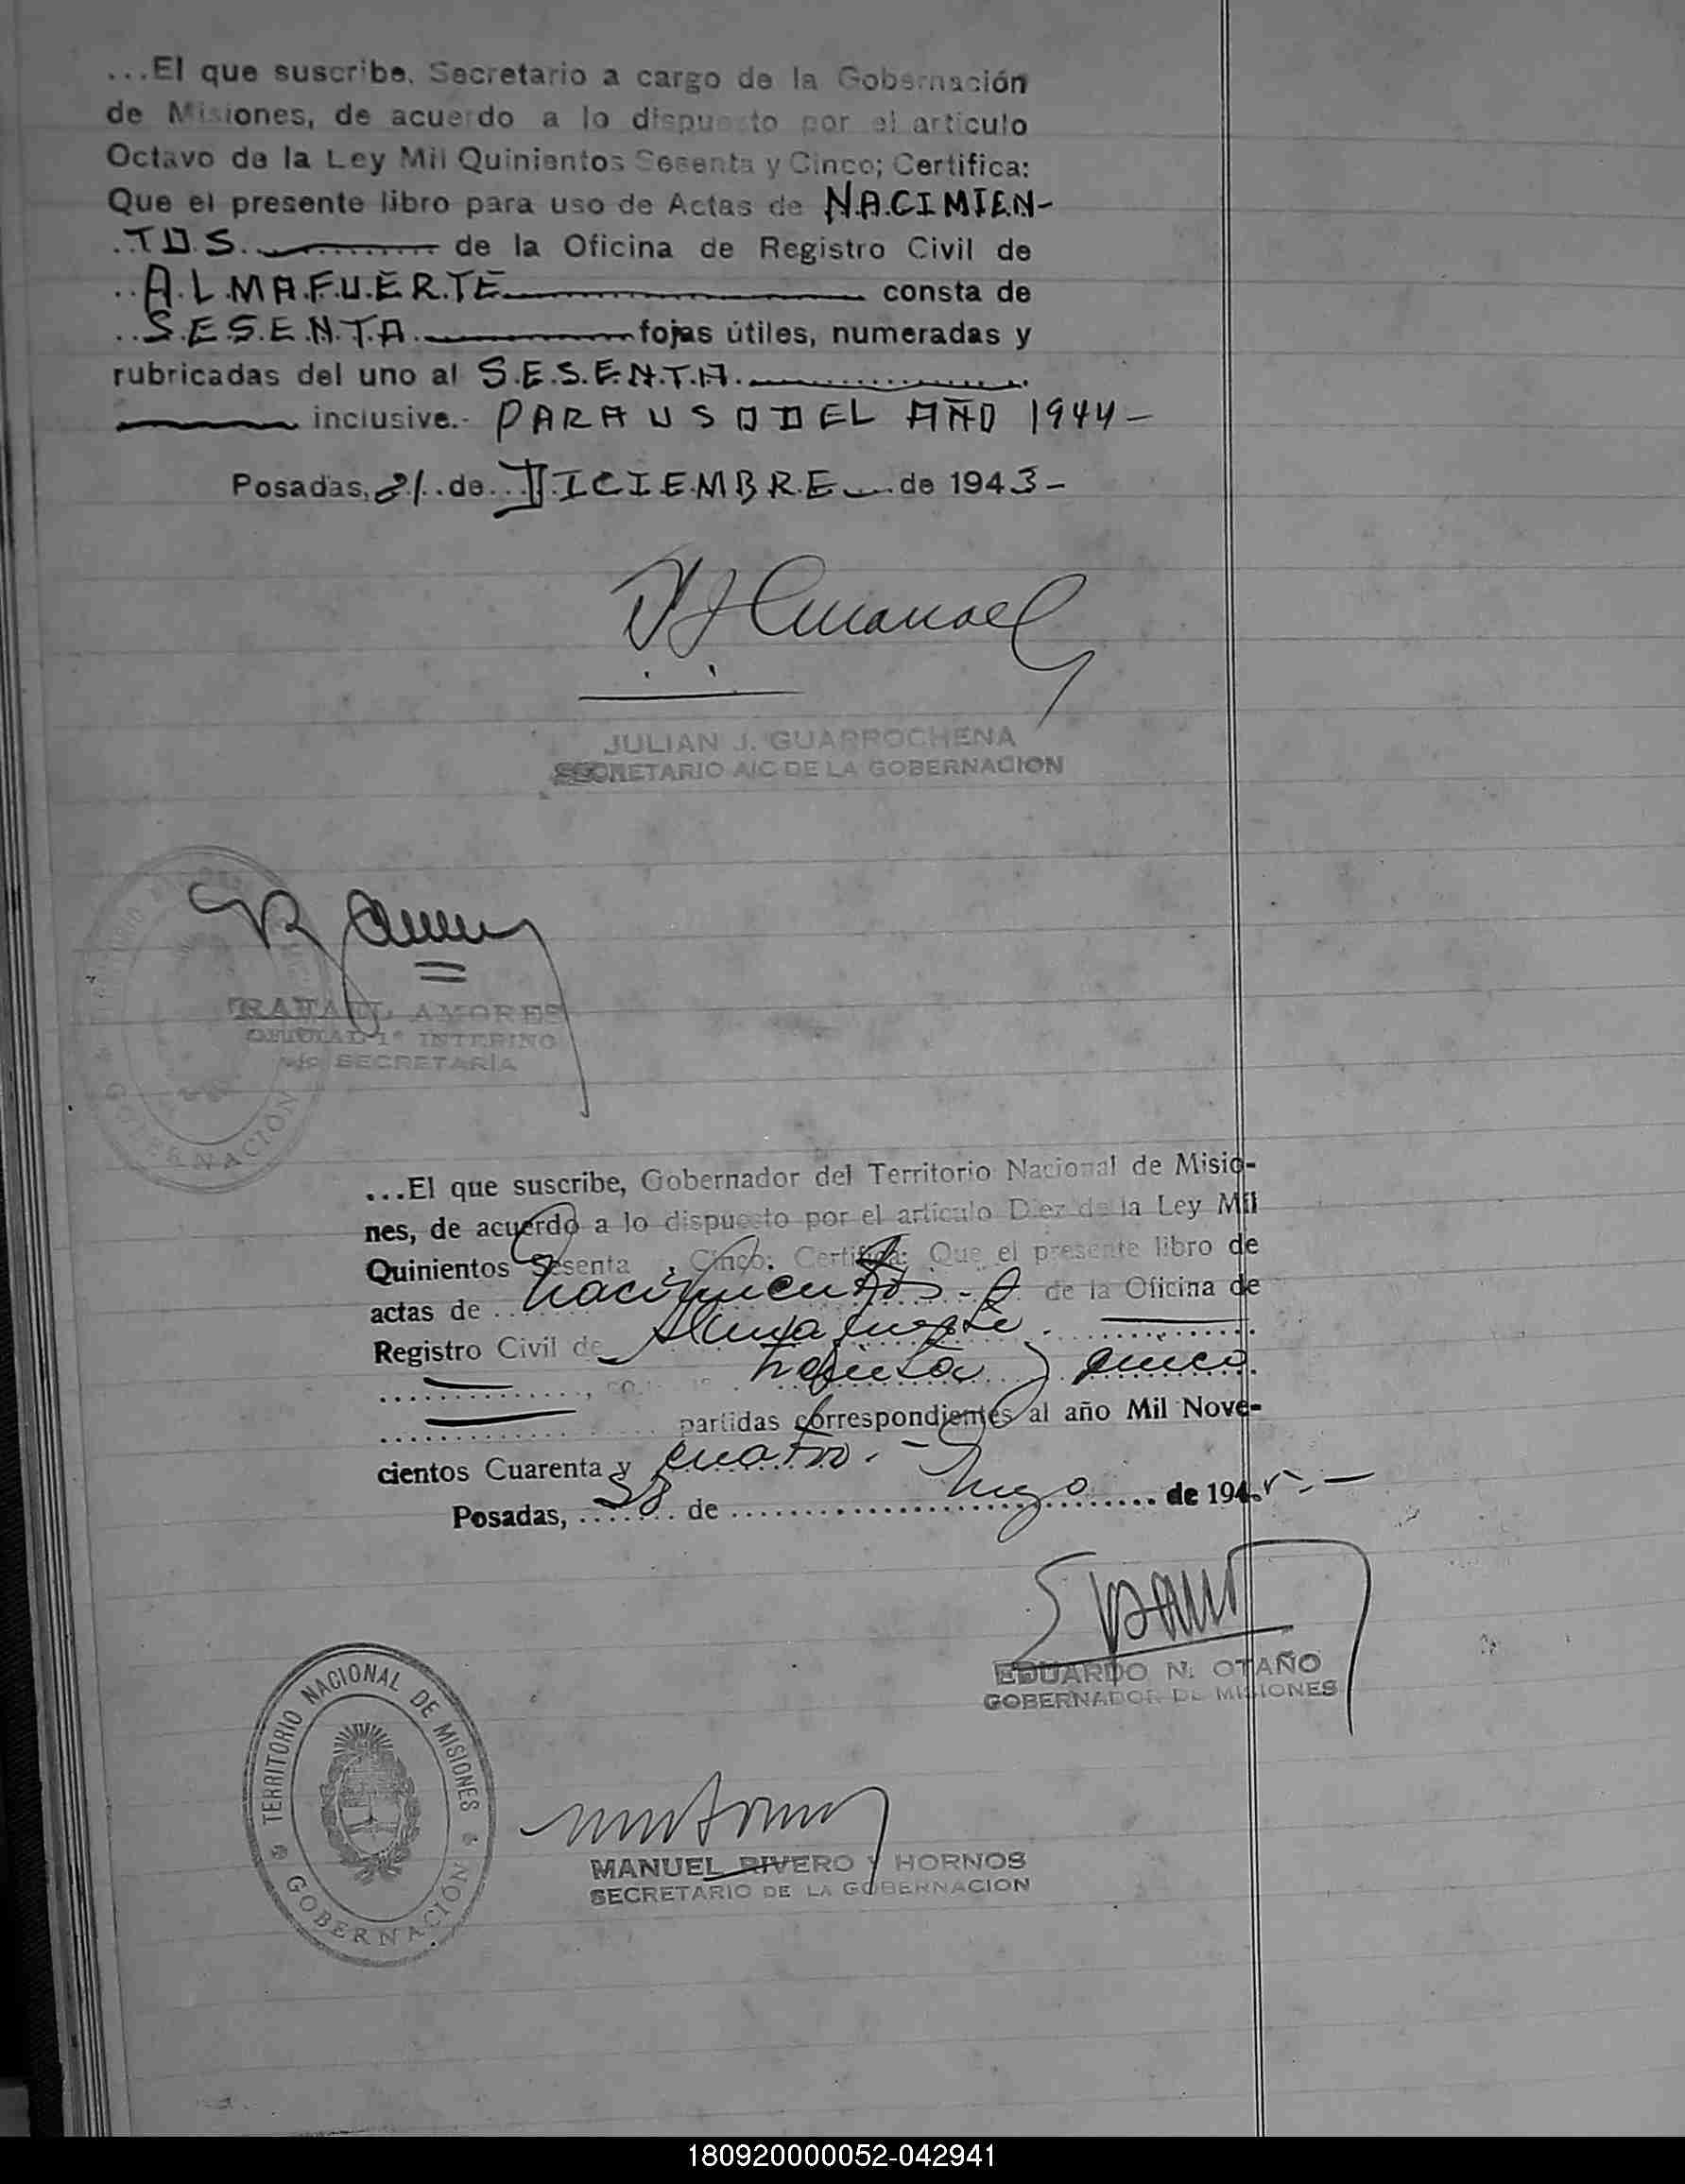 ...El que suscribe, Secretario a cargo de la Gobernación
de Misiones, de acuerdo a lo dispuesto por el artículo
Octavo de la Ley Mil Quinientos Sesenta y Cinco; Certifica:
Que el presente libro para uso de Actas de NACIMIEN-
TOS de la Oficina de Registro Civil de
ALMAFUERTE consta de
SESENTA fojas útiles, numeradas y
rubricadas del uno al SESENTA
inclusive.- PARA USO DEL AÑO 1944-
Posadas, 31 de DICIEMBRE de 1943-
JULIAN J. GUARROCHENA
SECRETARIO A/C DE LA GOBERNACION
RAFAEL AMORES
OFICIAL 1º INTERINO
a/c SECRETARÍA
GOBERNACIÓN
...El que suscribe, Gobernador del Territorio Nacional de Misio-
nes, de acuerdo a lo dispuesto por el artículo Diez de la Ley Mil
Quinientos Sesenta y Cinco: Certifica: Que el presente libro de
actas de nacimientos - de la Oficina de
Registro Civil de Almafuerte
treinta y cinco
partidas correspondientes al año Mil Nove-
cientos Cuarenta y cuatro.-
Posadas, 28 de Mayo de 1945.-
EDUARDO N. OTAÑO
GOBERNADOR DE MISIONES
TERRITORIO NACIONAL DE MISIONES
GOBERNACIÓN
MANUEL RIVERO Y HORNOS
SECRETARIO DE LA GOBERNACION
180920000052-042941